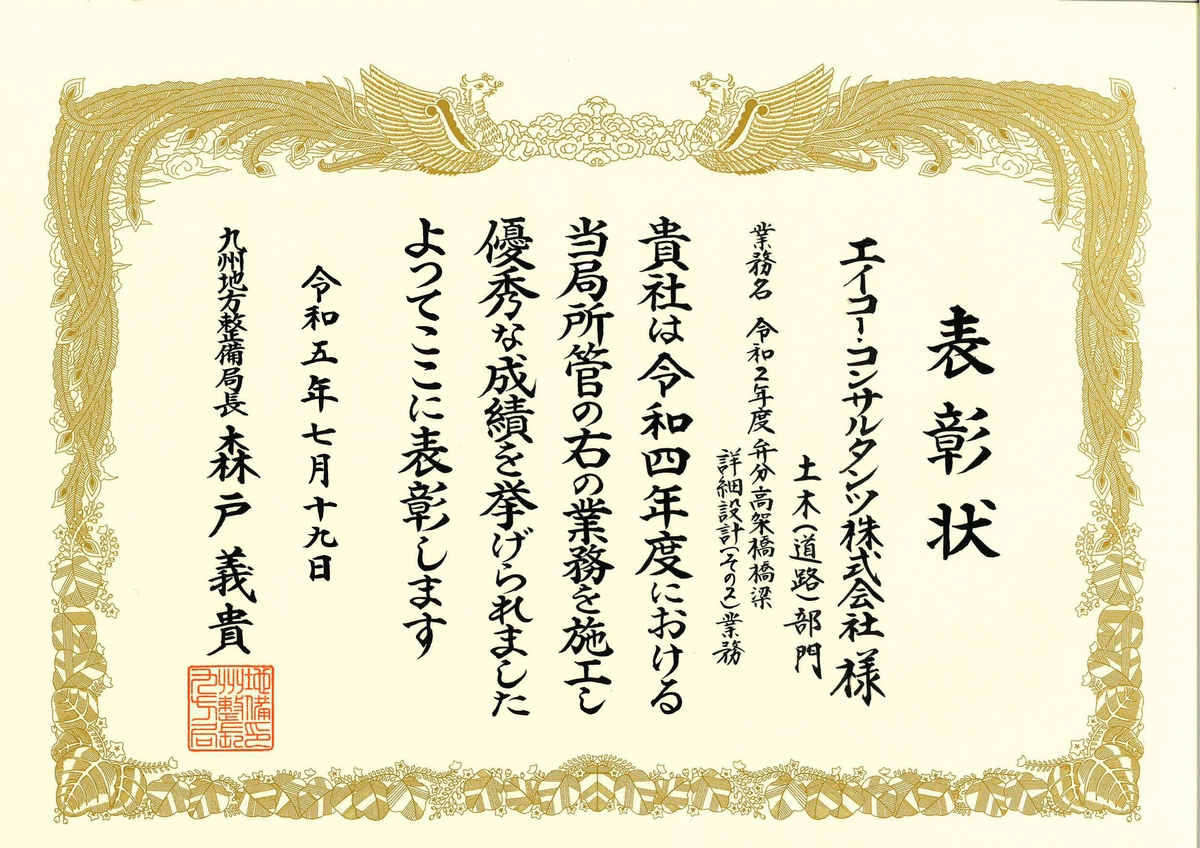 表彰状
エイコー・コンサルタンツ株式会社 様
土木(道路)部門
業務名 令和2年度弁分高架橋橋梁
詳細設計(その2)業務
貴社は令和四年度における
当局所管の右の業務を施工し
優秀な成績を挙げられました
よってここに表彰します
令和五年七月十九日
九州地方整備局長 森戸義貴